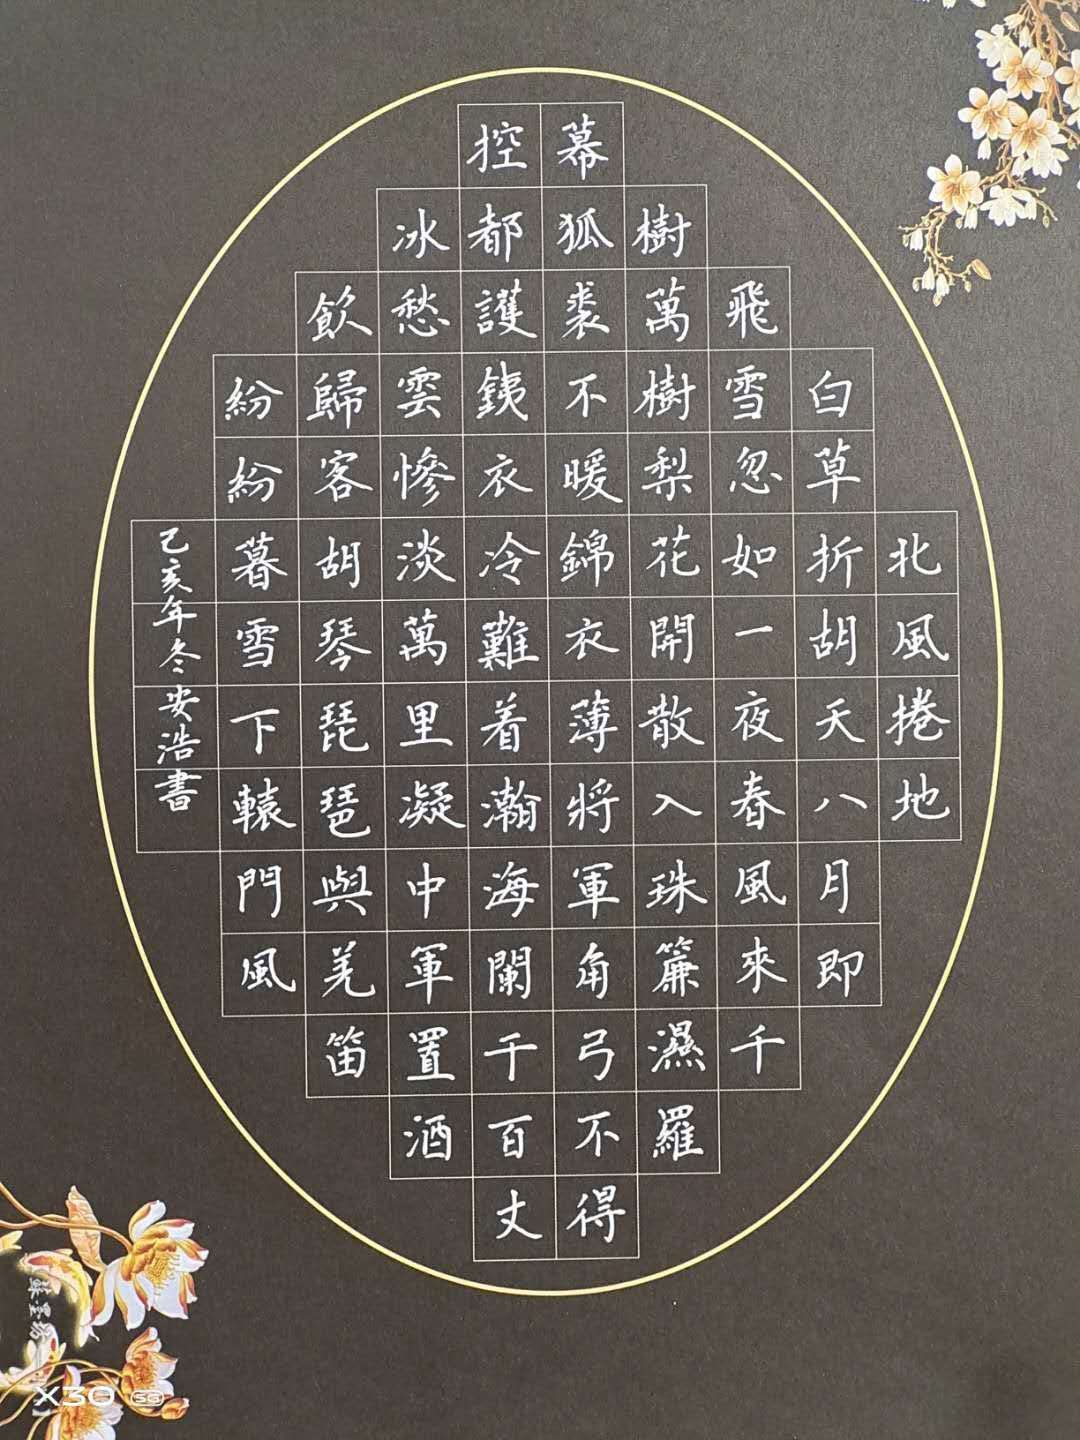 北風捲地
白草折胡天八月即
飛雪忽如一夜春風來千
樹萬樹梨花開散入珠簾濕羅
幕狐裘不暖錦衣薄將軍角弓不得
控都護銕衣冷難着瀚海闌干百丈
冰愁雲慘淡萬里凝中軍置酒
飲歸客胡琴琵琶與羌笛
紛紛暮雪下轅門風
己亥年冬安浩書
X30 5G